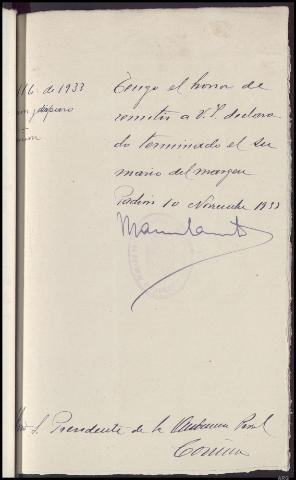 116 de 1933
y disparo
Tengo el honor de
remitir a V.S. declara
do terminado el su
mario del margen
Padrón 10 Noviembre 1933
S. Presidente de la Audiencia
Coruña